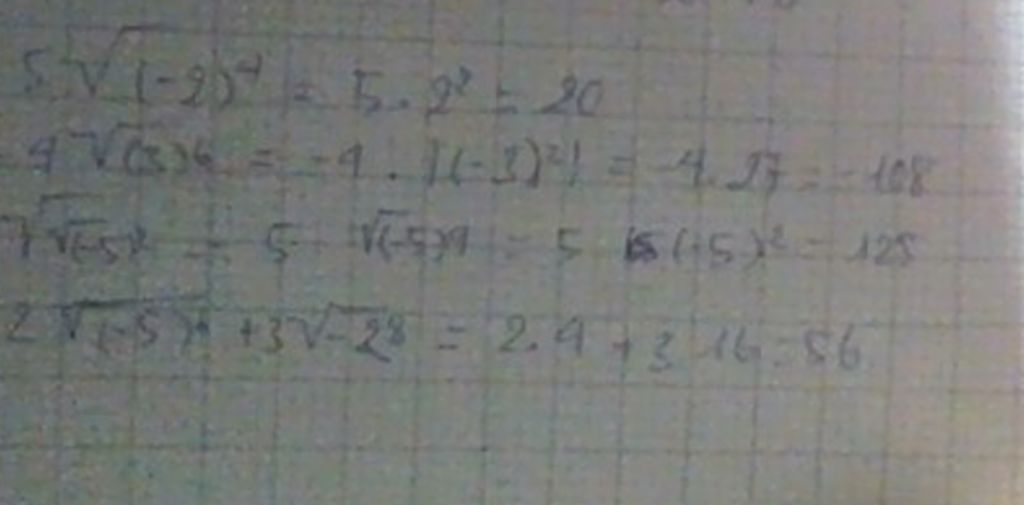 5 √(-2)^4 = 5 . 2² = 20
-4 √(-3)^6 = -4 . |(-3)³| = -4 . 27 = -108
√(-5)^8 = 5 √(-5)^4 = 5 (-5)² = 125
2 √(-5)^ + 3√-2^8 = 2 . 4 + 3 16 = 56